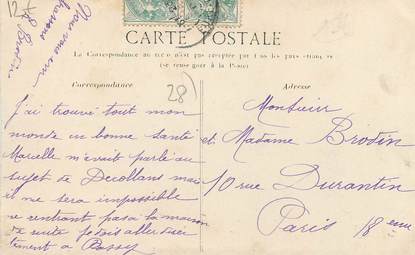 12 €
Nous vous em
brassons
L Brodin
CARTE POSTALE
La Correspondance au recto n'est pas acceptée par tous les pays étrangers
(se renseigner à la Poste)
Correspondance
28)
J'ai trouvé tout mon
monde en bonne santé
Marcelle m'avait parlé au
sujet de mais
il me sera impossible
ne rentrant pas à la maison
de suite je dois aller direc
tement à Passy
Adresse
Monsieur
et Madame Brodin
10 rue Durantin
Paris 18 eme